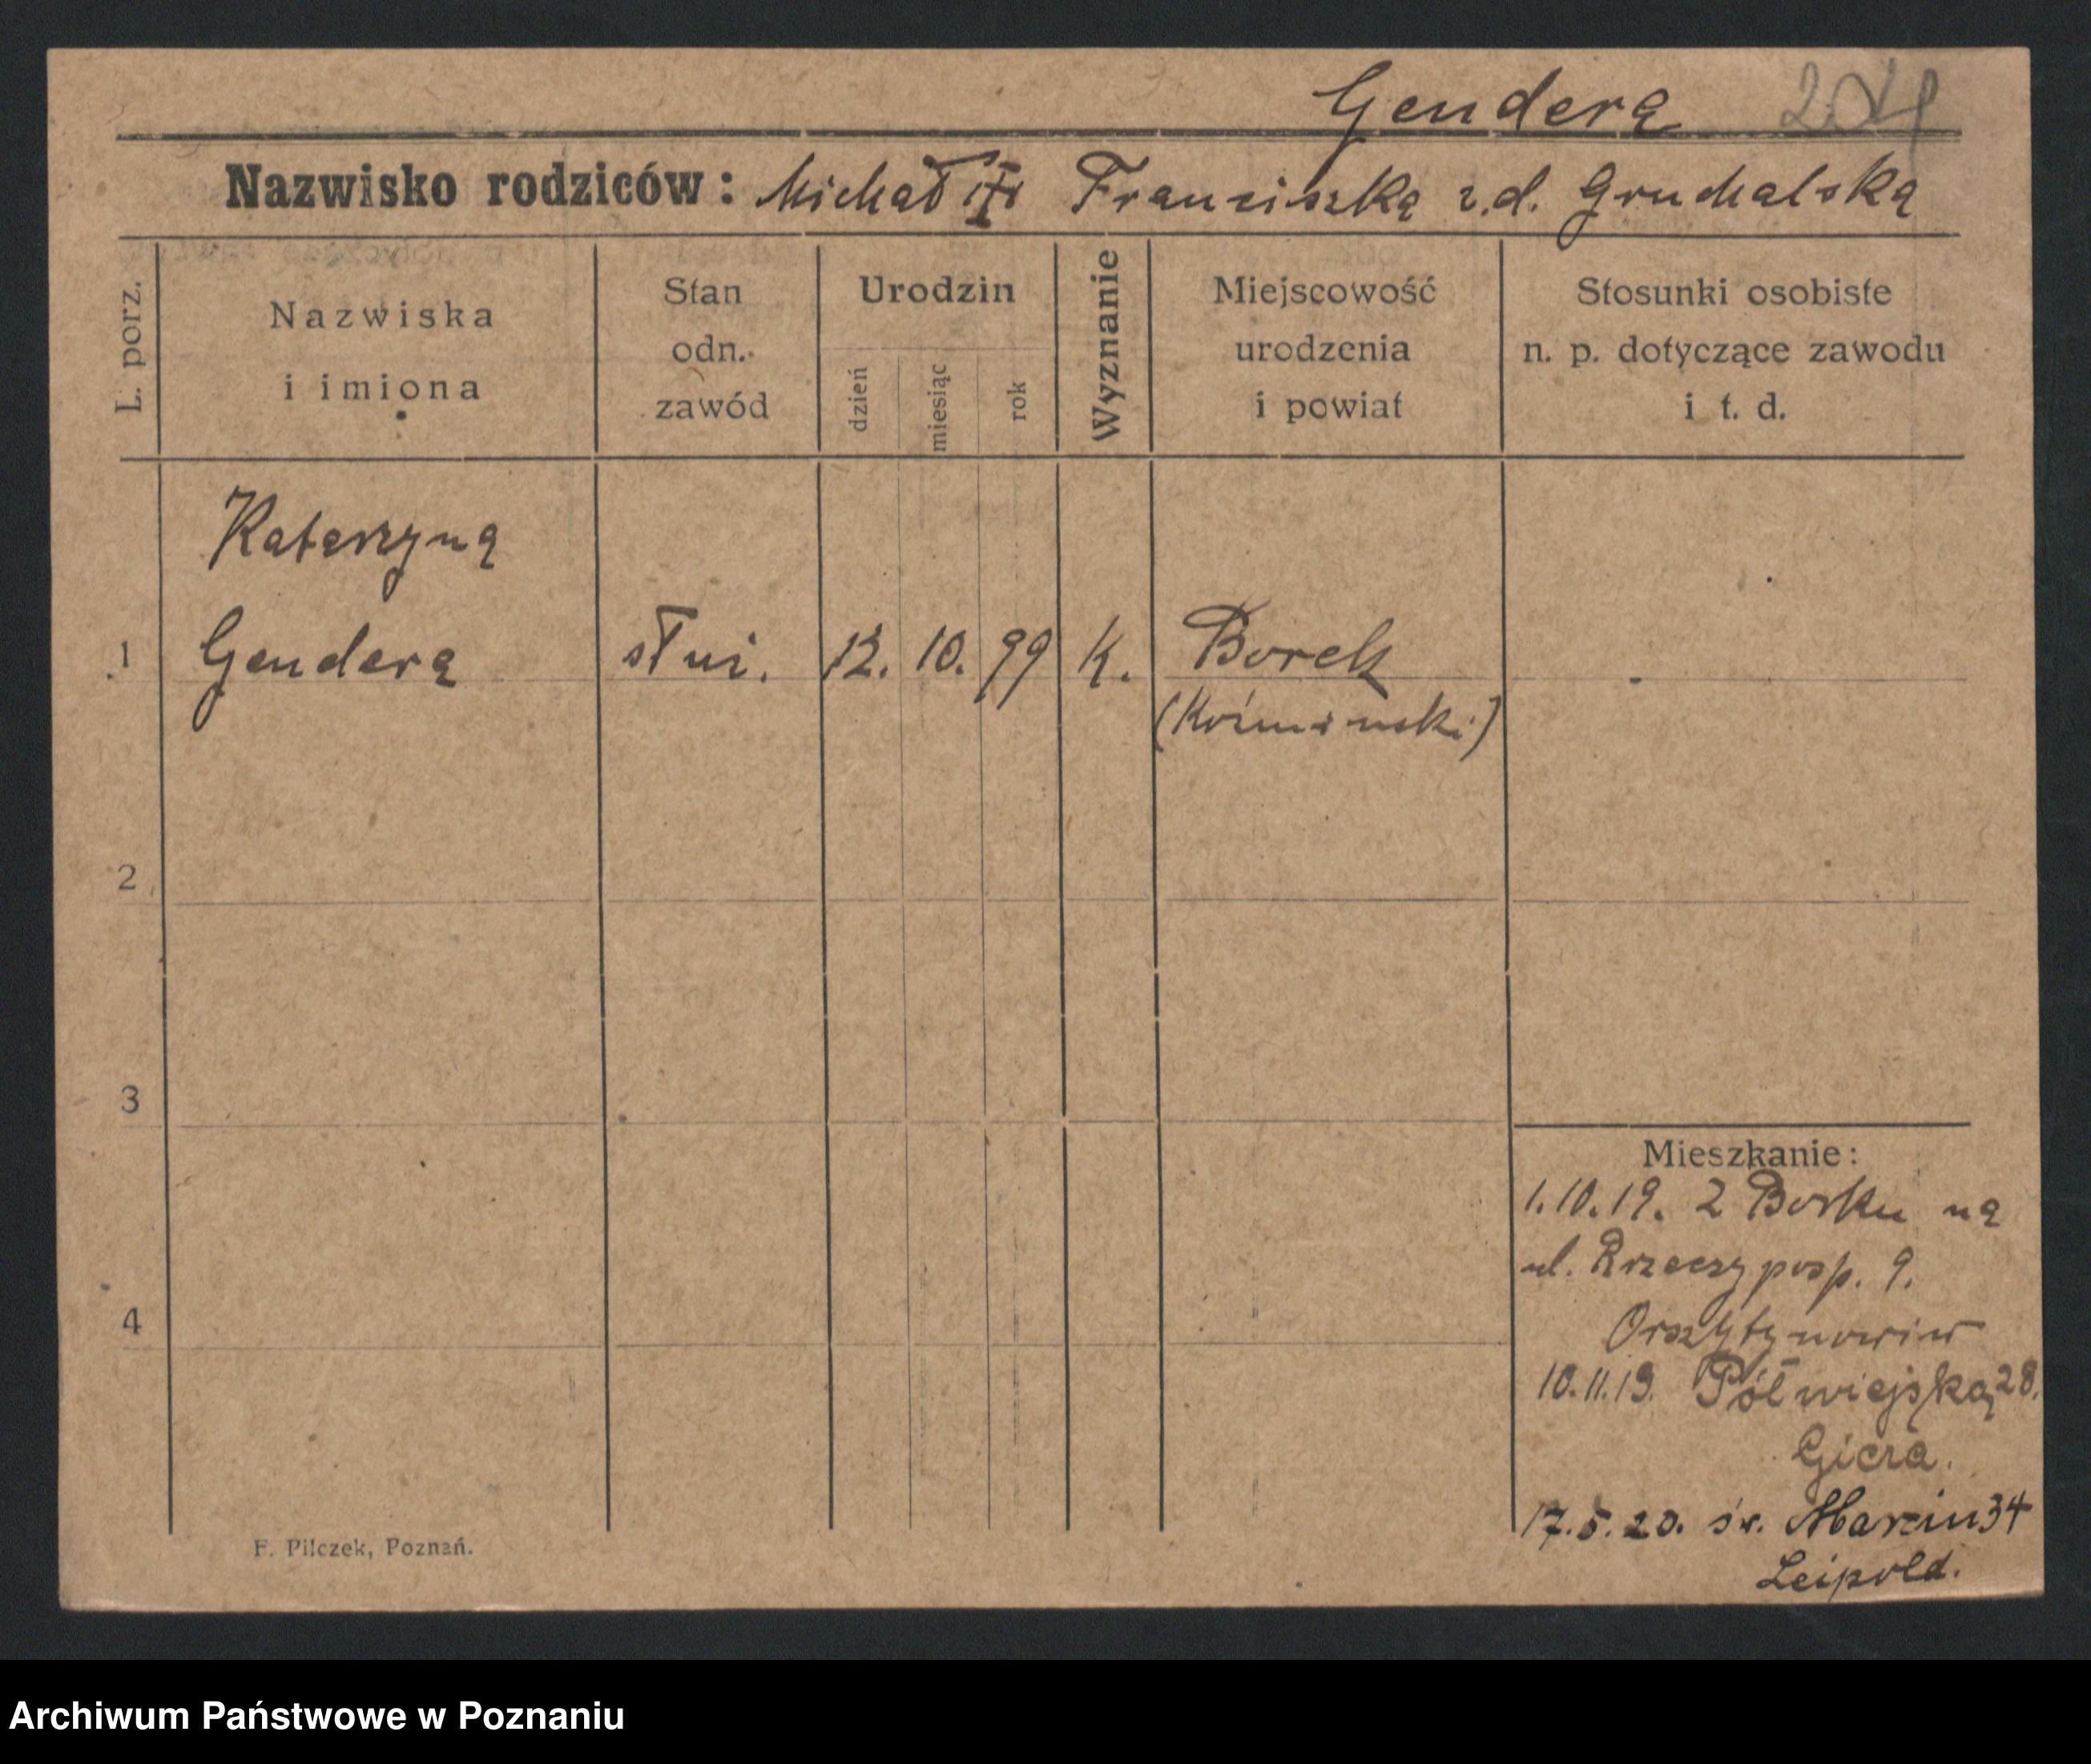 Gendera
Nazwisko rodziców: Michał Franciszka z.d. Gruchalska
L. porz.
Nazwiska
i imiona
Stan
odn.
zawód
Urodzin
dzień
miesiąc
rok
Wyznanie
Miejscowość
urodzenia
i powiat
Stosunki osobiste
n. p. dotyczące zawodu
i t. d.
Katarzyna
1 Gendera służ. 12. 10. 99 K. Borek
(Koźmiński)
2
3
4
Mieszkanie:
1.10.19. z Borku na
ul. Rzeczyposp. 9.
10.11.19. Półwiejska 28.
Giera.
17.5.20. św. Marcin 34
Leipold.
F. Pilczek, Poznań.
Archiwum Państwowe w Poznaniu